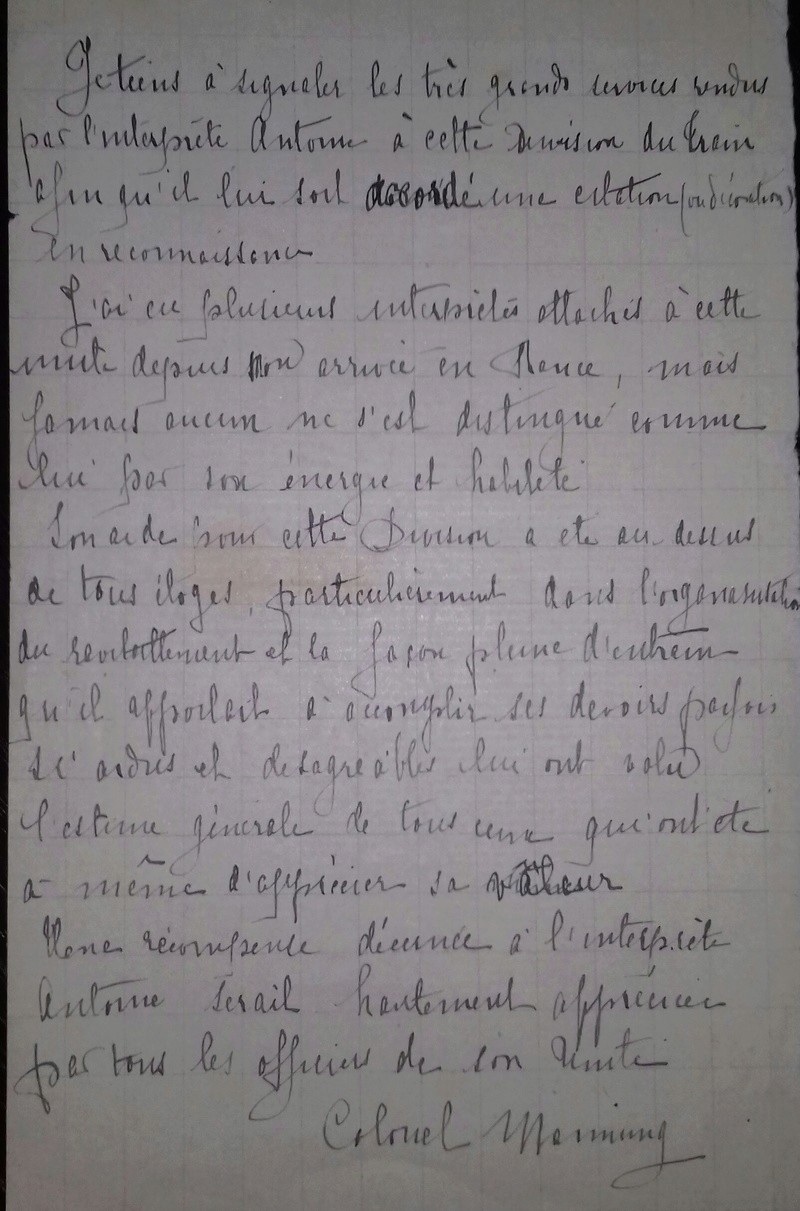 Je tiens à signaler les très grands services rendus
par l'interprète Antoine à cette Division du train
afin qu'il lui soit accordé une citation (ou décoration)
en reconnaissance
J'ai eu plusieurs interprètes attachés à cette
unité depuis mon arrivée en France, mais
jamais aucun ne s'est distingué comme
lui par son énergie et habileté
Son aide pour cette Division a été au dessus
de tous éloges, particulièrement dans l'organisation
du ravitaillement et la façon pleine d'entrain
qu'il apportait à accomplir ses devoirs parfois
si ardus et désagréables lui ont valu
l'estime générale de tous ceux qui ont été
à même d'apprécier sa valeur
Une récompense décernée à l'interprète
Antoine serait hautement appréciée
par tous les officiers de son Unité
Colonel